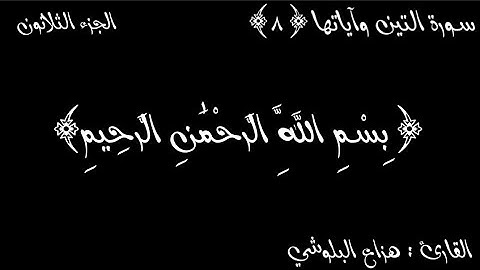 سورة التين وآياتها ﴿٨﴾
الجزء الثلاثون
﴿بِسْمِ اللَّهِ الرَّحْمَٰنِ الرَّحِيمِ﴾
القارئ : هزاع البلوشي